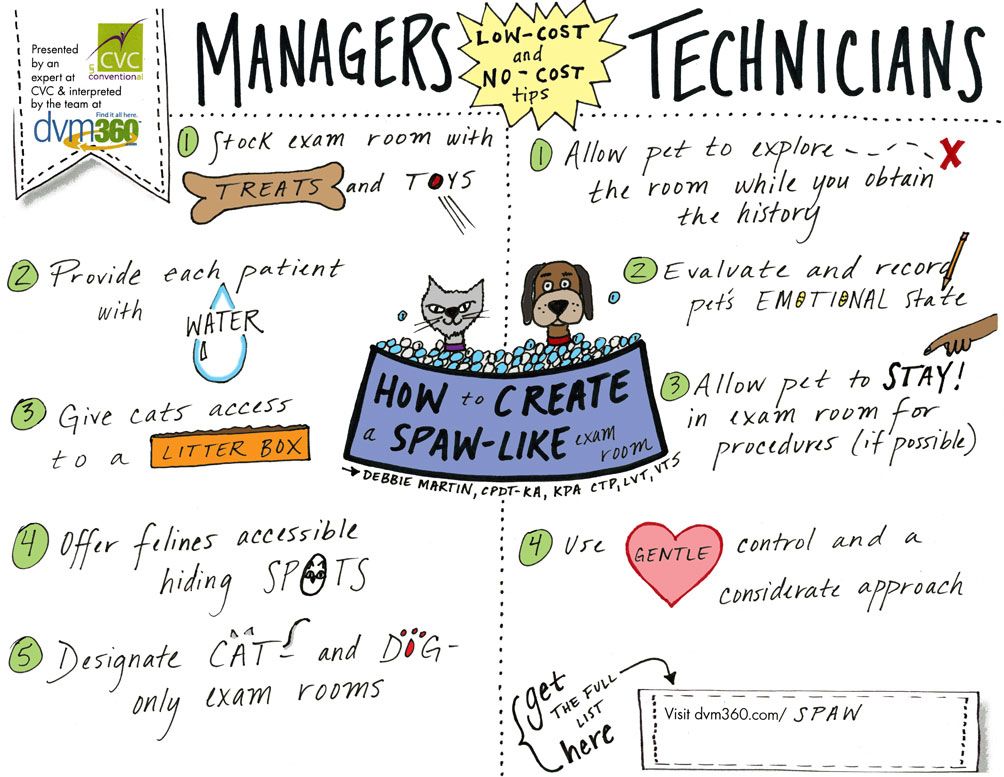 Presented
by an
expert at
CVC & interpreted
by the team at
CVC
conventional
Find it all here.
dvm360
MANAGERS
LOW-COST
and
NO-COST
tips
TECHNICIANS
1 Stock exam room with
TREATS and TOYS
2 Provide each patient
with WATER
3 Give cats access
to a LITTER BOX
4 Offer felines accessible
hiding SPOTS
5 Designate CAT- and DOG-
only exam rooms
HOW to CREATE
a SPAW-LIKE exam
room
DEBBIE MARTIN, CPDT-KA, KPA CTP, LVT, VTS
1 Allow pet to explore
the room while you obtain
the history
2 Evaluate and record
pet's EMOTIONAL state
3 Allow pet to STAY!
in exam room for
procedures (if possible)
4 Use GENTLE control and a
considerate approach
get
THE FULL
LIST
here
Visit dvm360.com/ SPAW